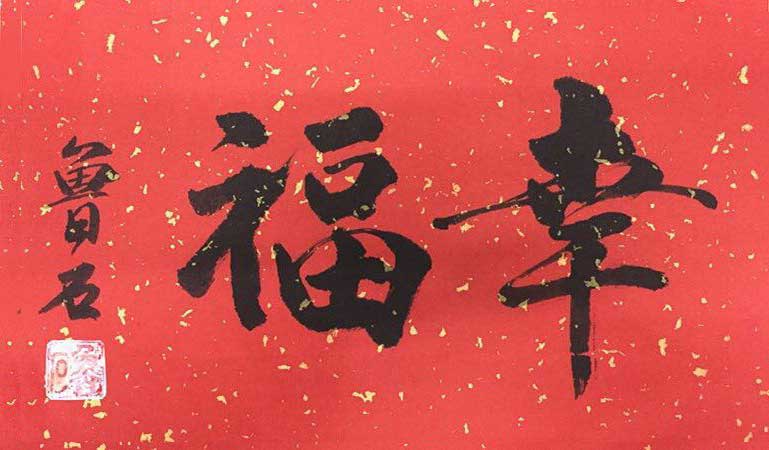 幸福
魯石